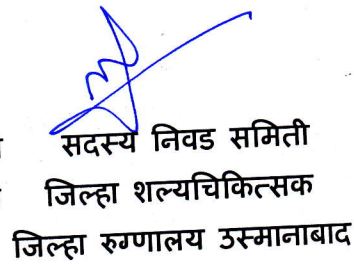 सदस्य निवड समिती
जिल्हा शल्यचिकित्सक
जिल्हा रुग्णालय उस्मानाबाद